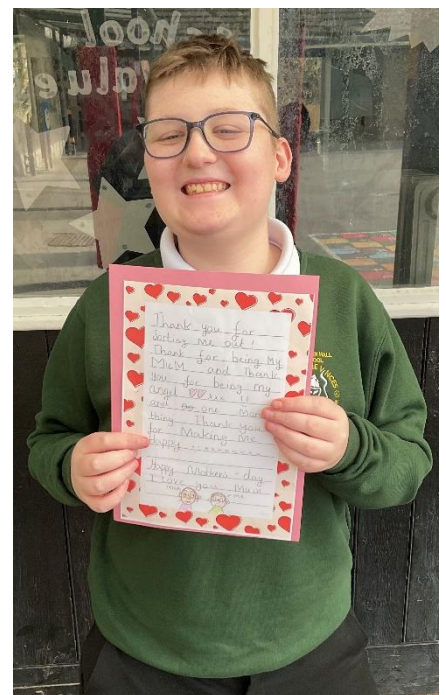 school
value
Thank you for
sorting me out!
Thank for being My
MuM and Thank
you for being my
angel
and one More
thing Thank you
for Making Me
Happy
Happy Mothers-day
I Love you Mum
mum
me